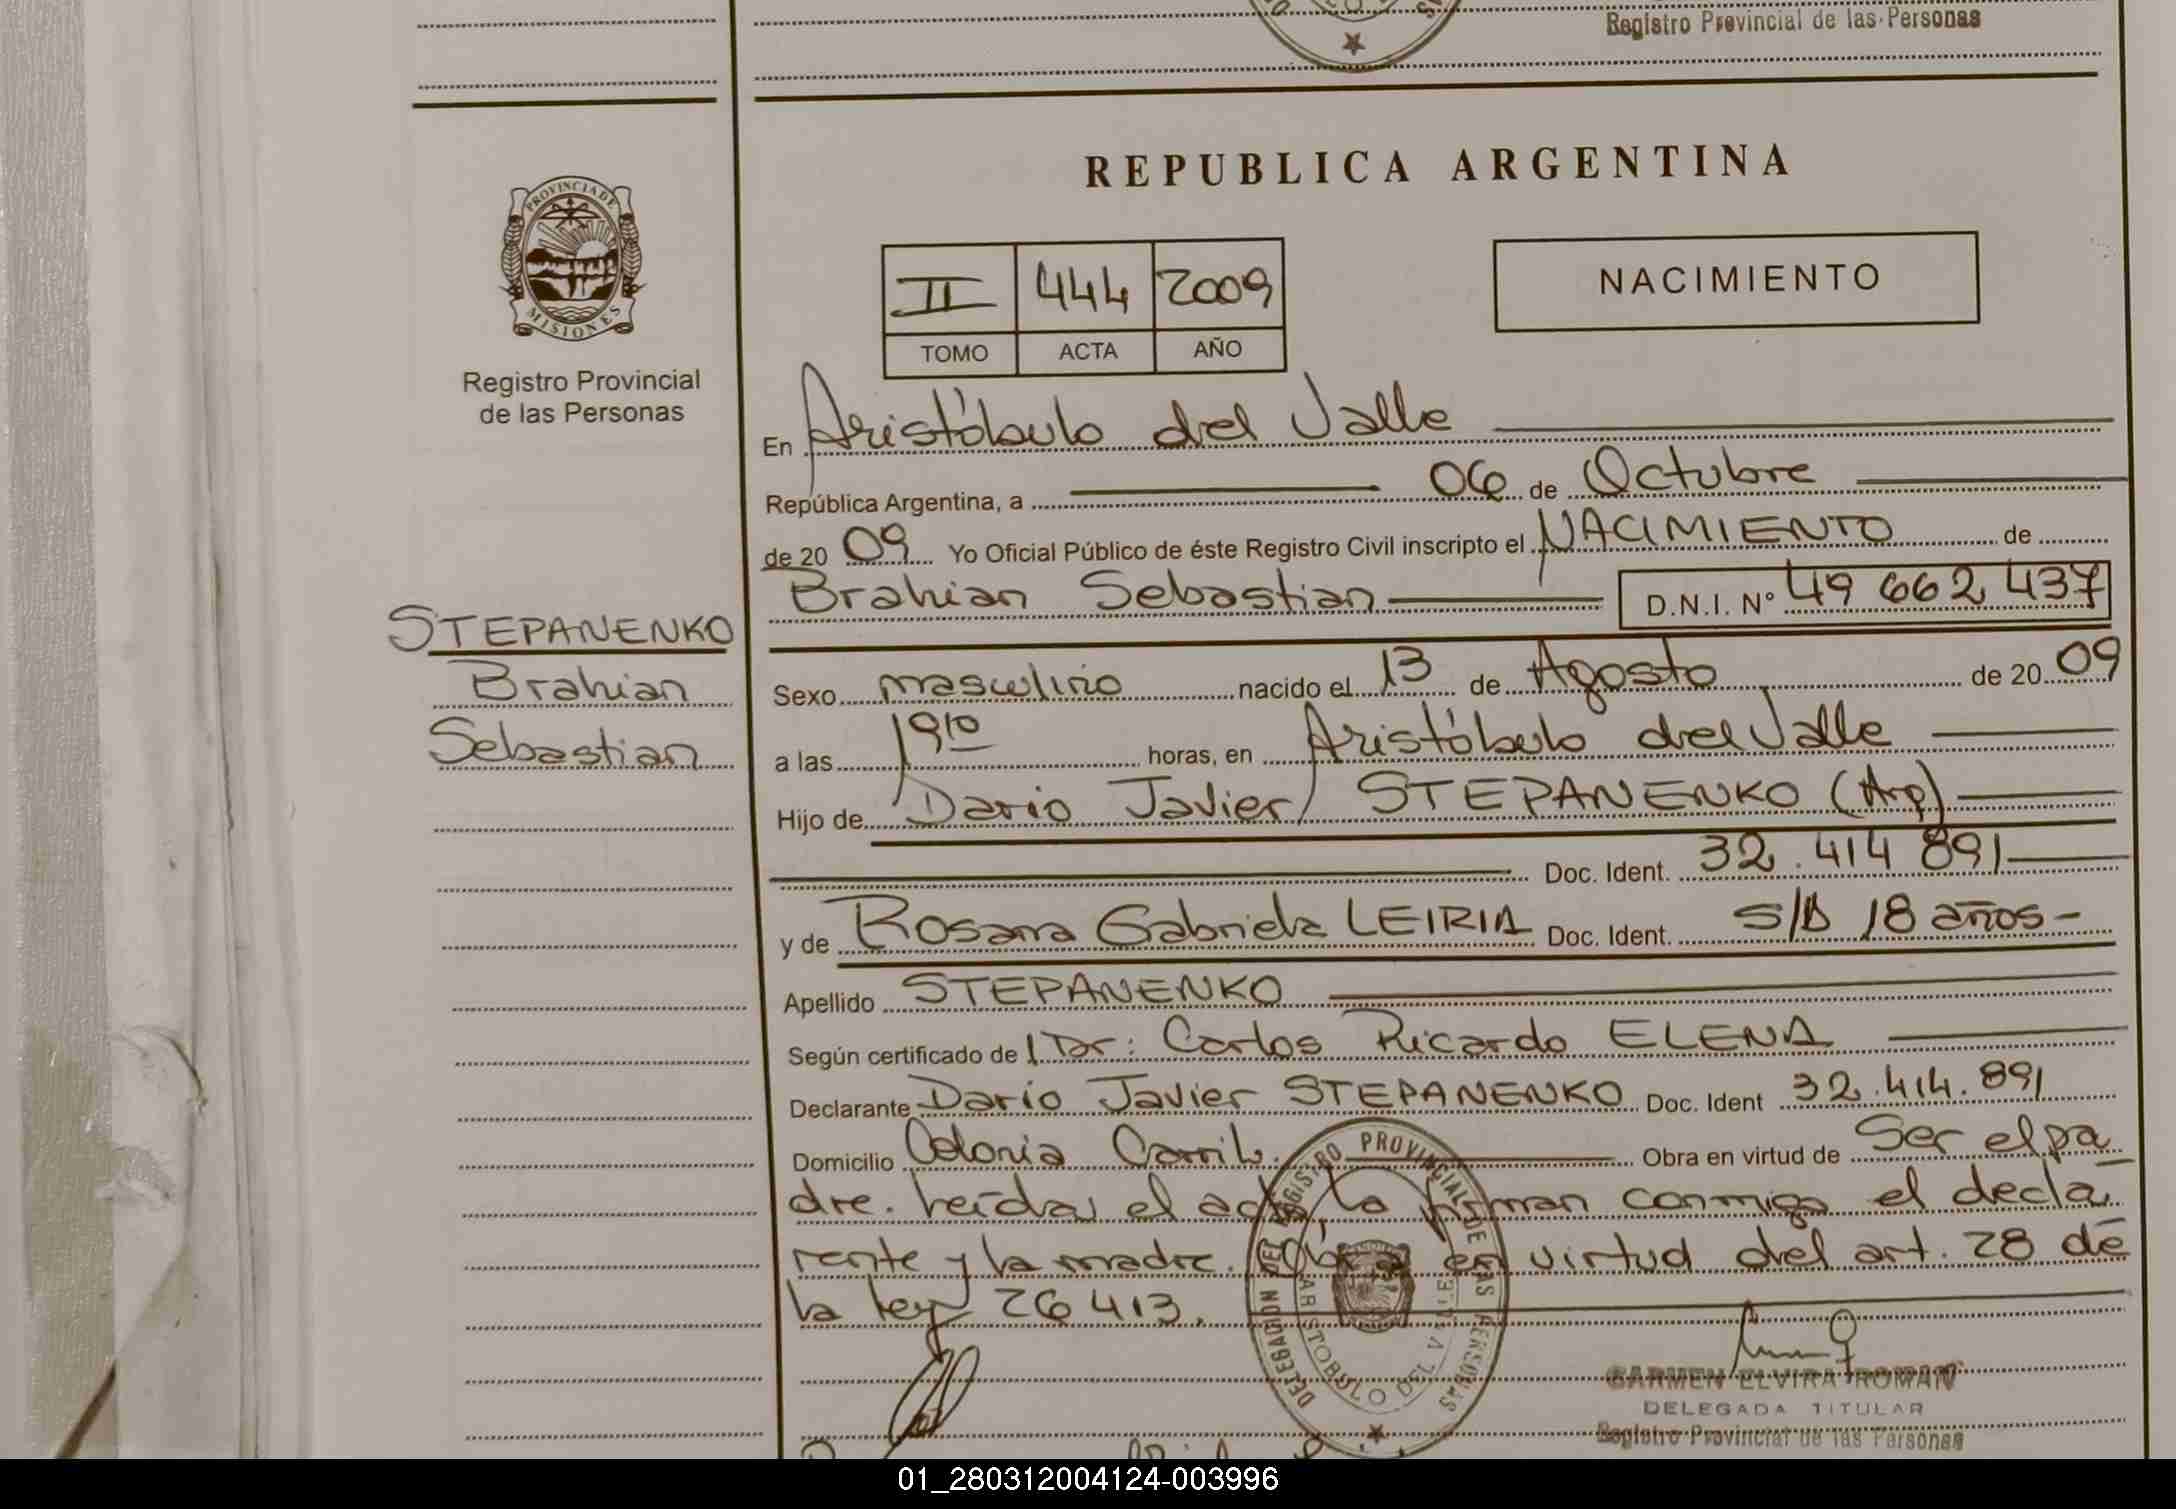 Registro Provincial de las Personas
REPUBLICA ARGENTINA
PROVINCIA DE
MISIONES
Registro Provincial
de las Personas
II 444 2009
TOMO ACTA AÑO
NACIMIENTO
En Aristóbulo del Valle
República Argentina, a 06 de Octubre
de 20 09 Yo Oficial Público de éste Registro Civil inscripto el NACIMIENTO de
Brahian Sebastian D.N.I. N° 49 662 437
STEPANENKO
Brahian
Sebastian
Sexo masculino nacido el 13 de Agosto de 20 09
a las 19 10 horas, en Aristóbulo del Valle
Hijo de Dario Javier STEPANENKO (Arg)
Doc. Ident. 32.414 891
y de Rosana Gabriela LEIRIA Doc. Ident. S/D 18 años-
Apellido STEPANENKO
Según certificado de Dr: Carlos Ricardo ELENA
Declarante Dario Javier STEPANENKO Doc. Ident 32.414.891
Domicilio Colonia Obra en virtud de Ser el pa
dre. Leída el acta, la firman conmigo el decla
rante y la madre. Obra en virtud del art. 28 de
la ley 26 413.
DELEGACION DEL REGISTRO PROVINCIAL DE LAS PERSONAS
ARISTOBULO DEL VALLE
CARMEN ELVIRA ROMAN
DELEGADA TITULAR
Registro Provincial de las Personas
01_280312004124-003996